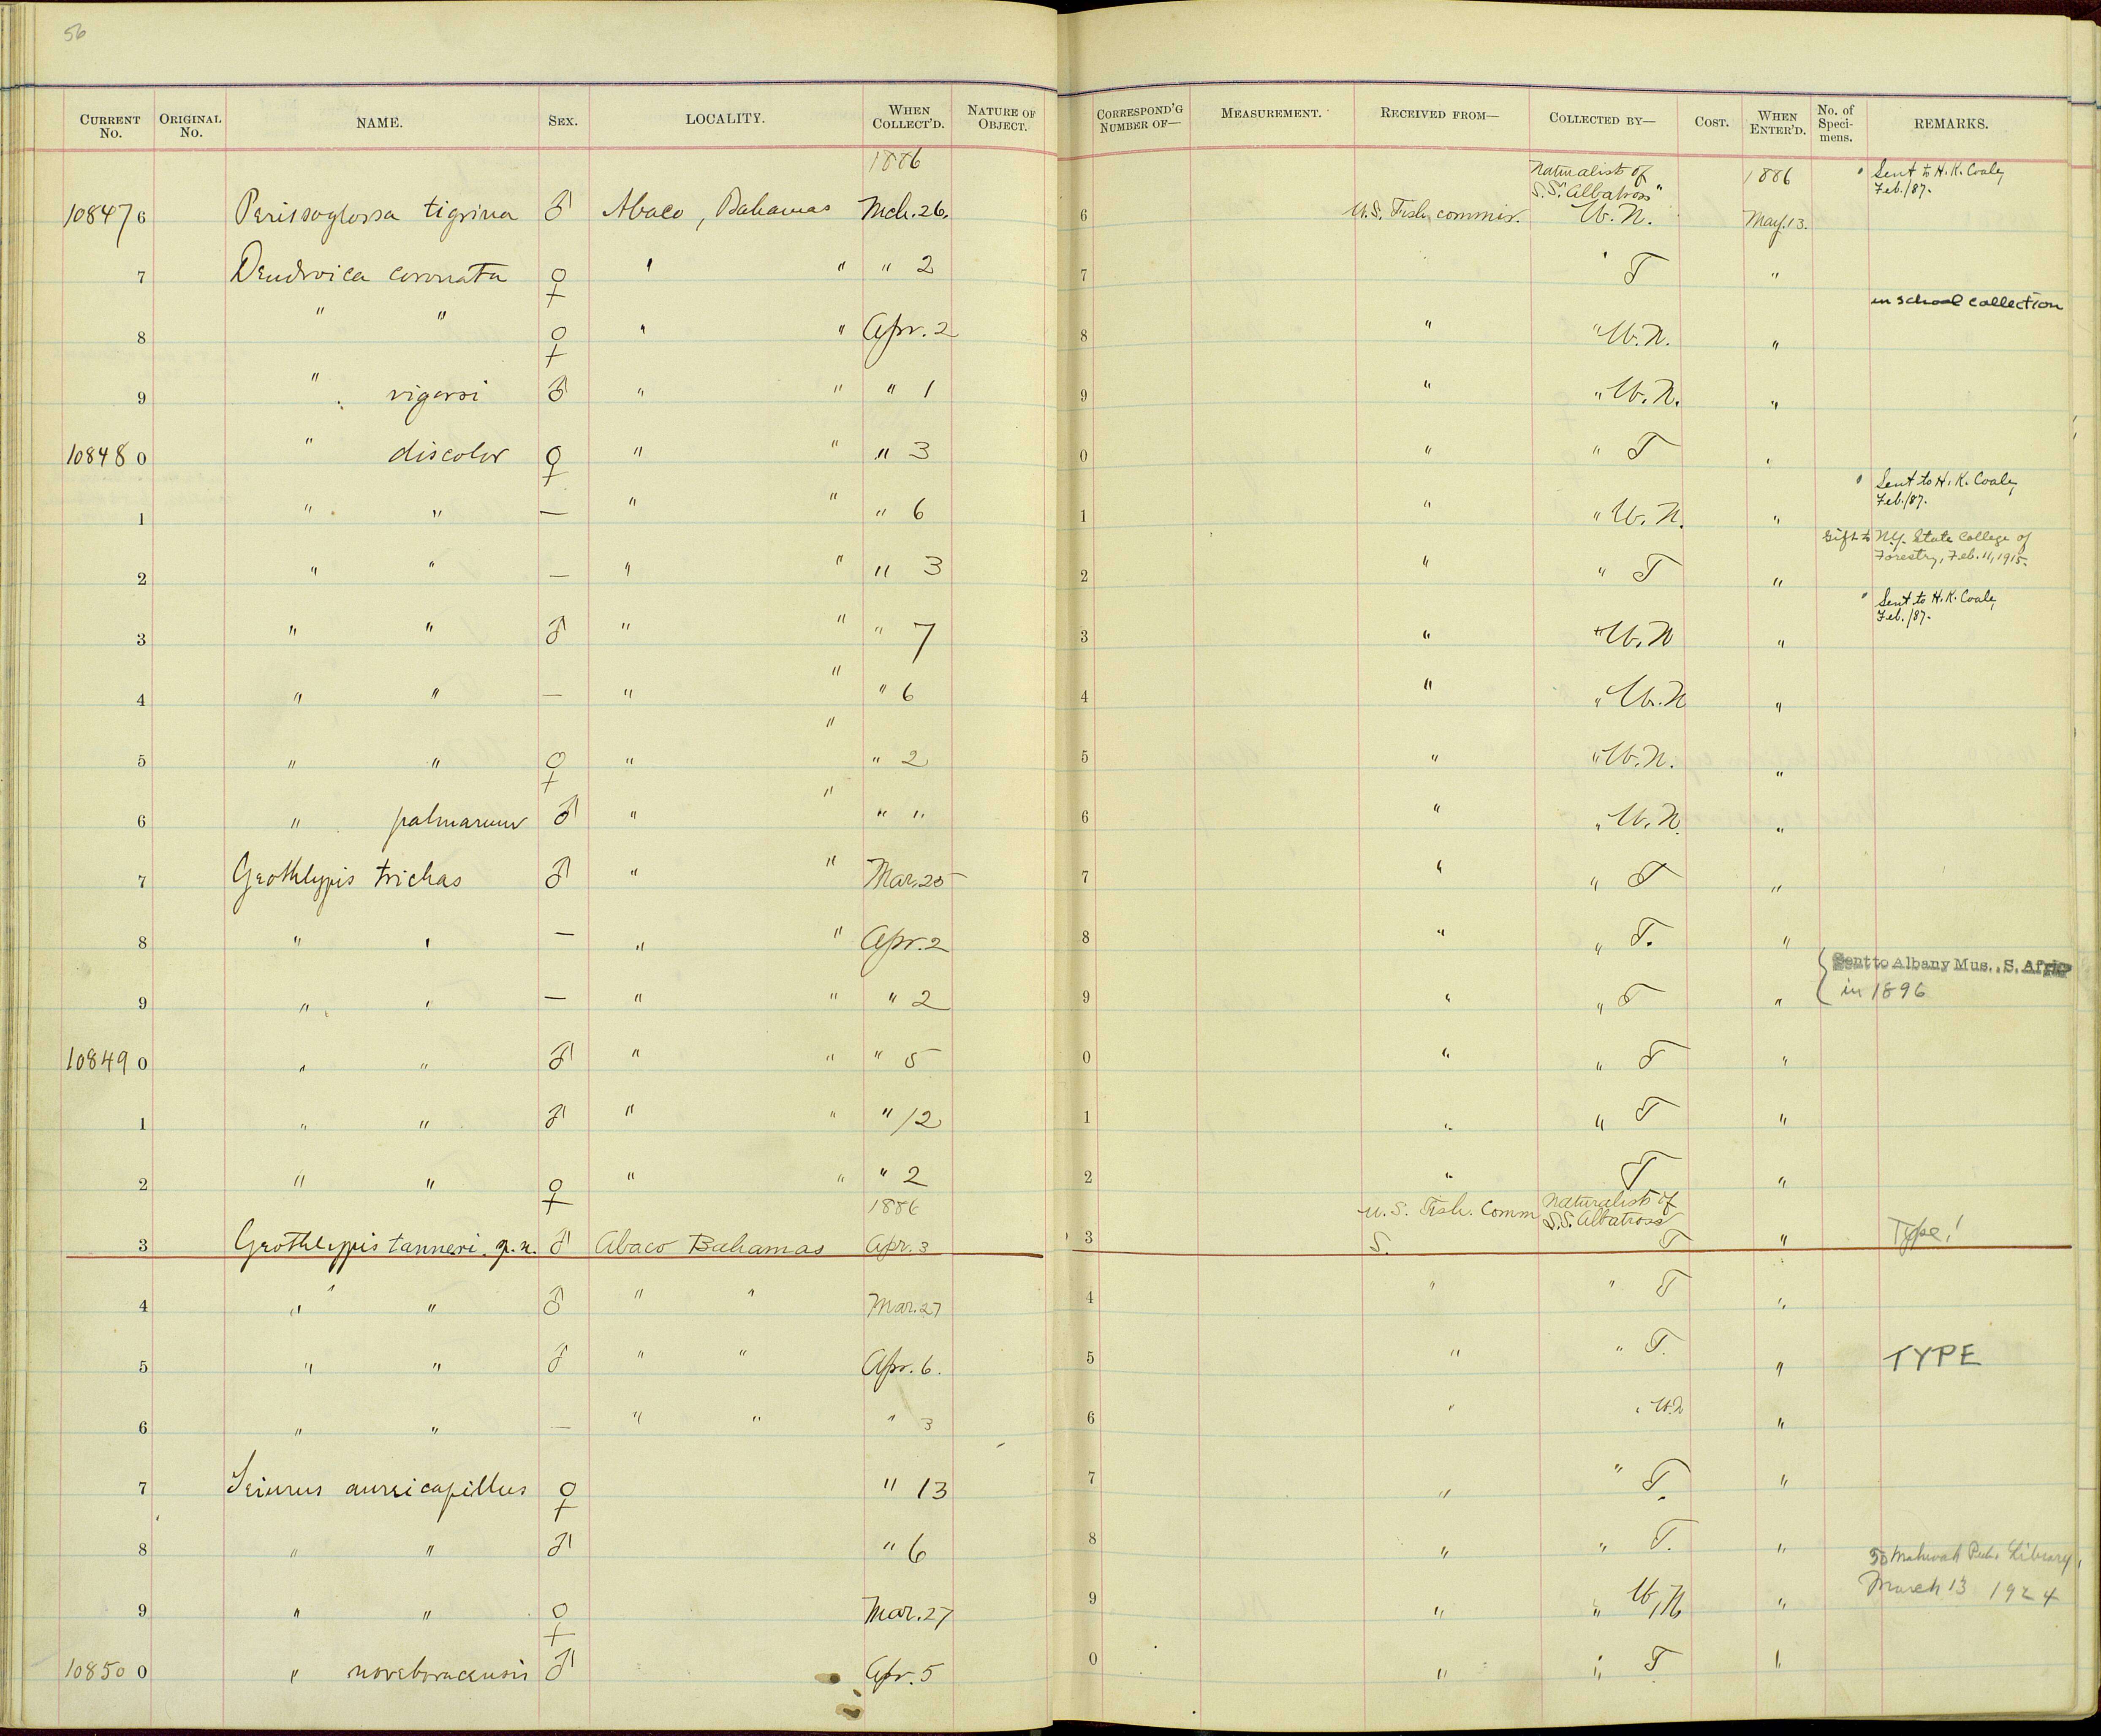 56
CURRENT No. ORIGINAL No. NAME. SEX. LOCALITY. WHEN COLLECT'D. NATURE OF OBJECT. CORRESPOND'G NUMBER OF— MEASUREMENT. RECEIVED FROM— COLLECTED BY— COST. WHEN ENTER'D. No. of Speci-mens. REMARKS.
1886 Naturalists of S.S. "Albatross" 1886 Sent to H. K. Coale, Feb./87.
10847 6 Perissoglossa tigrina ♂ Abaco, Bahamas Mch. 26. 6 U.S. Fish commis. W. N. May. 13.
7 Dendroica coronata ♀ " " " 2 7 " T "
in school collection
8 " " ♀ " " Apr. 2 8 " " W. N. "
9 " vigorsi ♂ " " " 1 9 " " W. N. "
10848 0 " discolor ♀ " " " 3 0 " " T "
1 " " — " " " 6 1 " " W. N. " Sent to H. K. Coale, Feb./87.
2 " " — " " " 3 2 " " T " Gift to N.Y. State College of Forestry, Feb. 11, 1915.
3 " " ♂ " " " 7 3 " " W. N " Sent to H. K. Coale, Feb./87.
4 " " — " " " 6 4 " " W. N "
5 " " ♀ " " " 2 5 " " W. N. "
6 " palmarum ♂ " " " " 6 " " W. N. "
7 Geothlypis trichas ♂ " " Mar. 25 7 " " T "
8 " " — " " Apr. 2 8 " " T. "
9 " " — " " " 2 9 " " T " Sent to Albany Mus., S. Afric in 1896
10849 0 " " ♂ " " " 5 0 " " T "
1 " " ♂ " " " 12 1 " " T "
2 " " ♀ " " " 2 2 " T "
1886 U.S. Fish. Comm Naturalists of S.S. Albatross
3 Geothlypis tanneri. ♂ Abaco Bahamas Apr. 3 3 S. T " Type!
4 " " ♂ " " Mar. 27 4 " " T "
5 " " ♂ " " Apr. 6. 5 " " T. " TYPE
6 " " — " " " 3 6 " " W. N "
7 Seiurus auricapillus ♀ " 13 7 " " T. "
8 " " ♂ " 6 8 " " T. "
To Mahwah Pub. Library,
9 " " ♀ Mar. 27 9 " " W. N. " March 13 1924
10850 0 " noveboracensis ♂ Apr. 5 0 " " T "